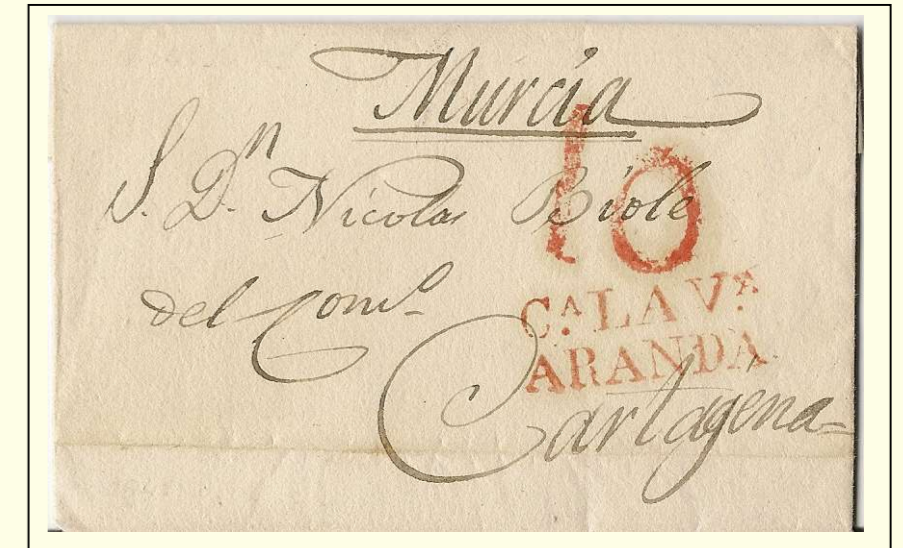 Murcia
S. Dn. Nicolas Biole
del Comº
10
CA. LA VA.
ARANDA
Cartagena